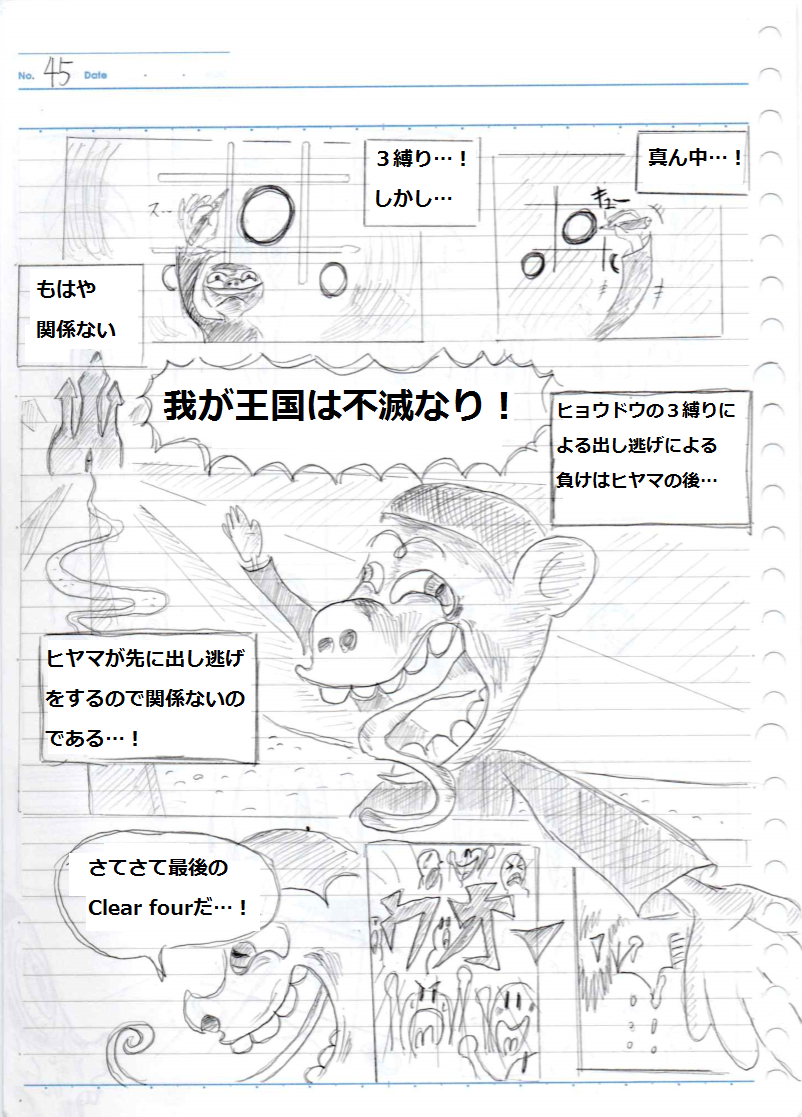 No. 45 Date
真ん中…！
キュー
３縛り…！
しかし…
ス…
もはや
関係ない
我が王国は不滅なり！
ヒョウドウの３縛りに
よる出し逃げによる
負けはヒヤマの後…
ヒヤマが先に出し逃げ
をするので関係ないの
である…！
さてさて最後の
Clear fourだ…！
ウオ